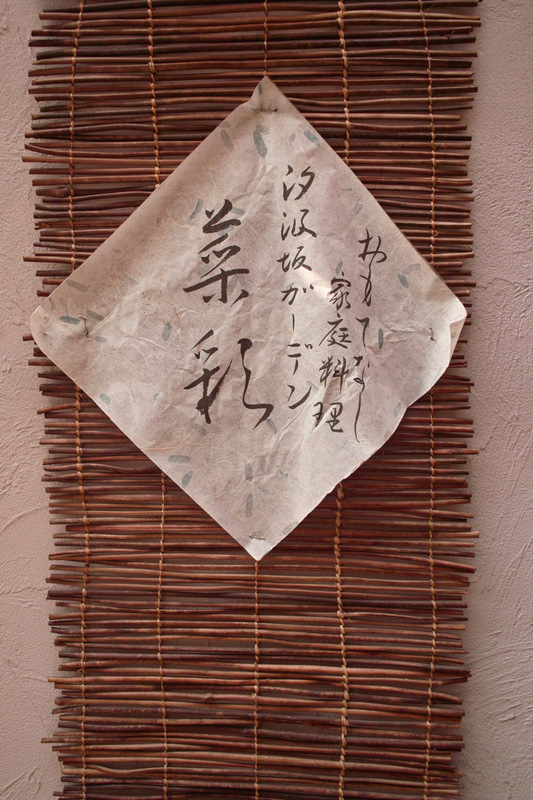 おもてなし
家庭料理
汐汲坂ガーデン
菜彩